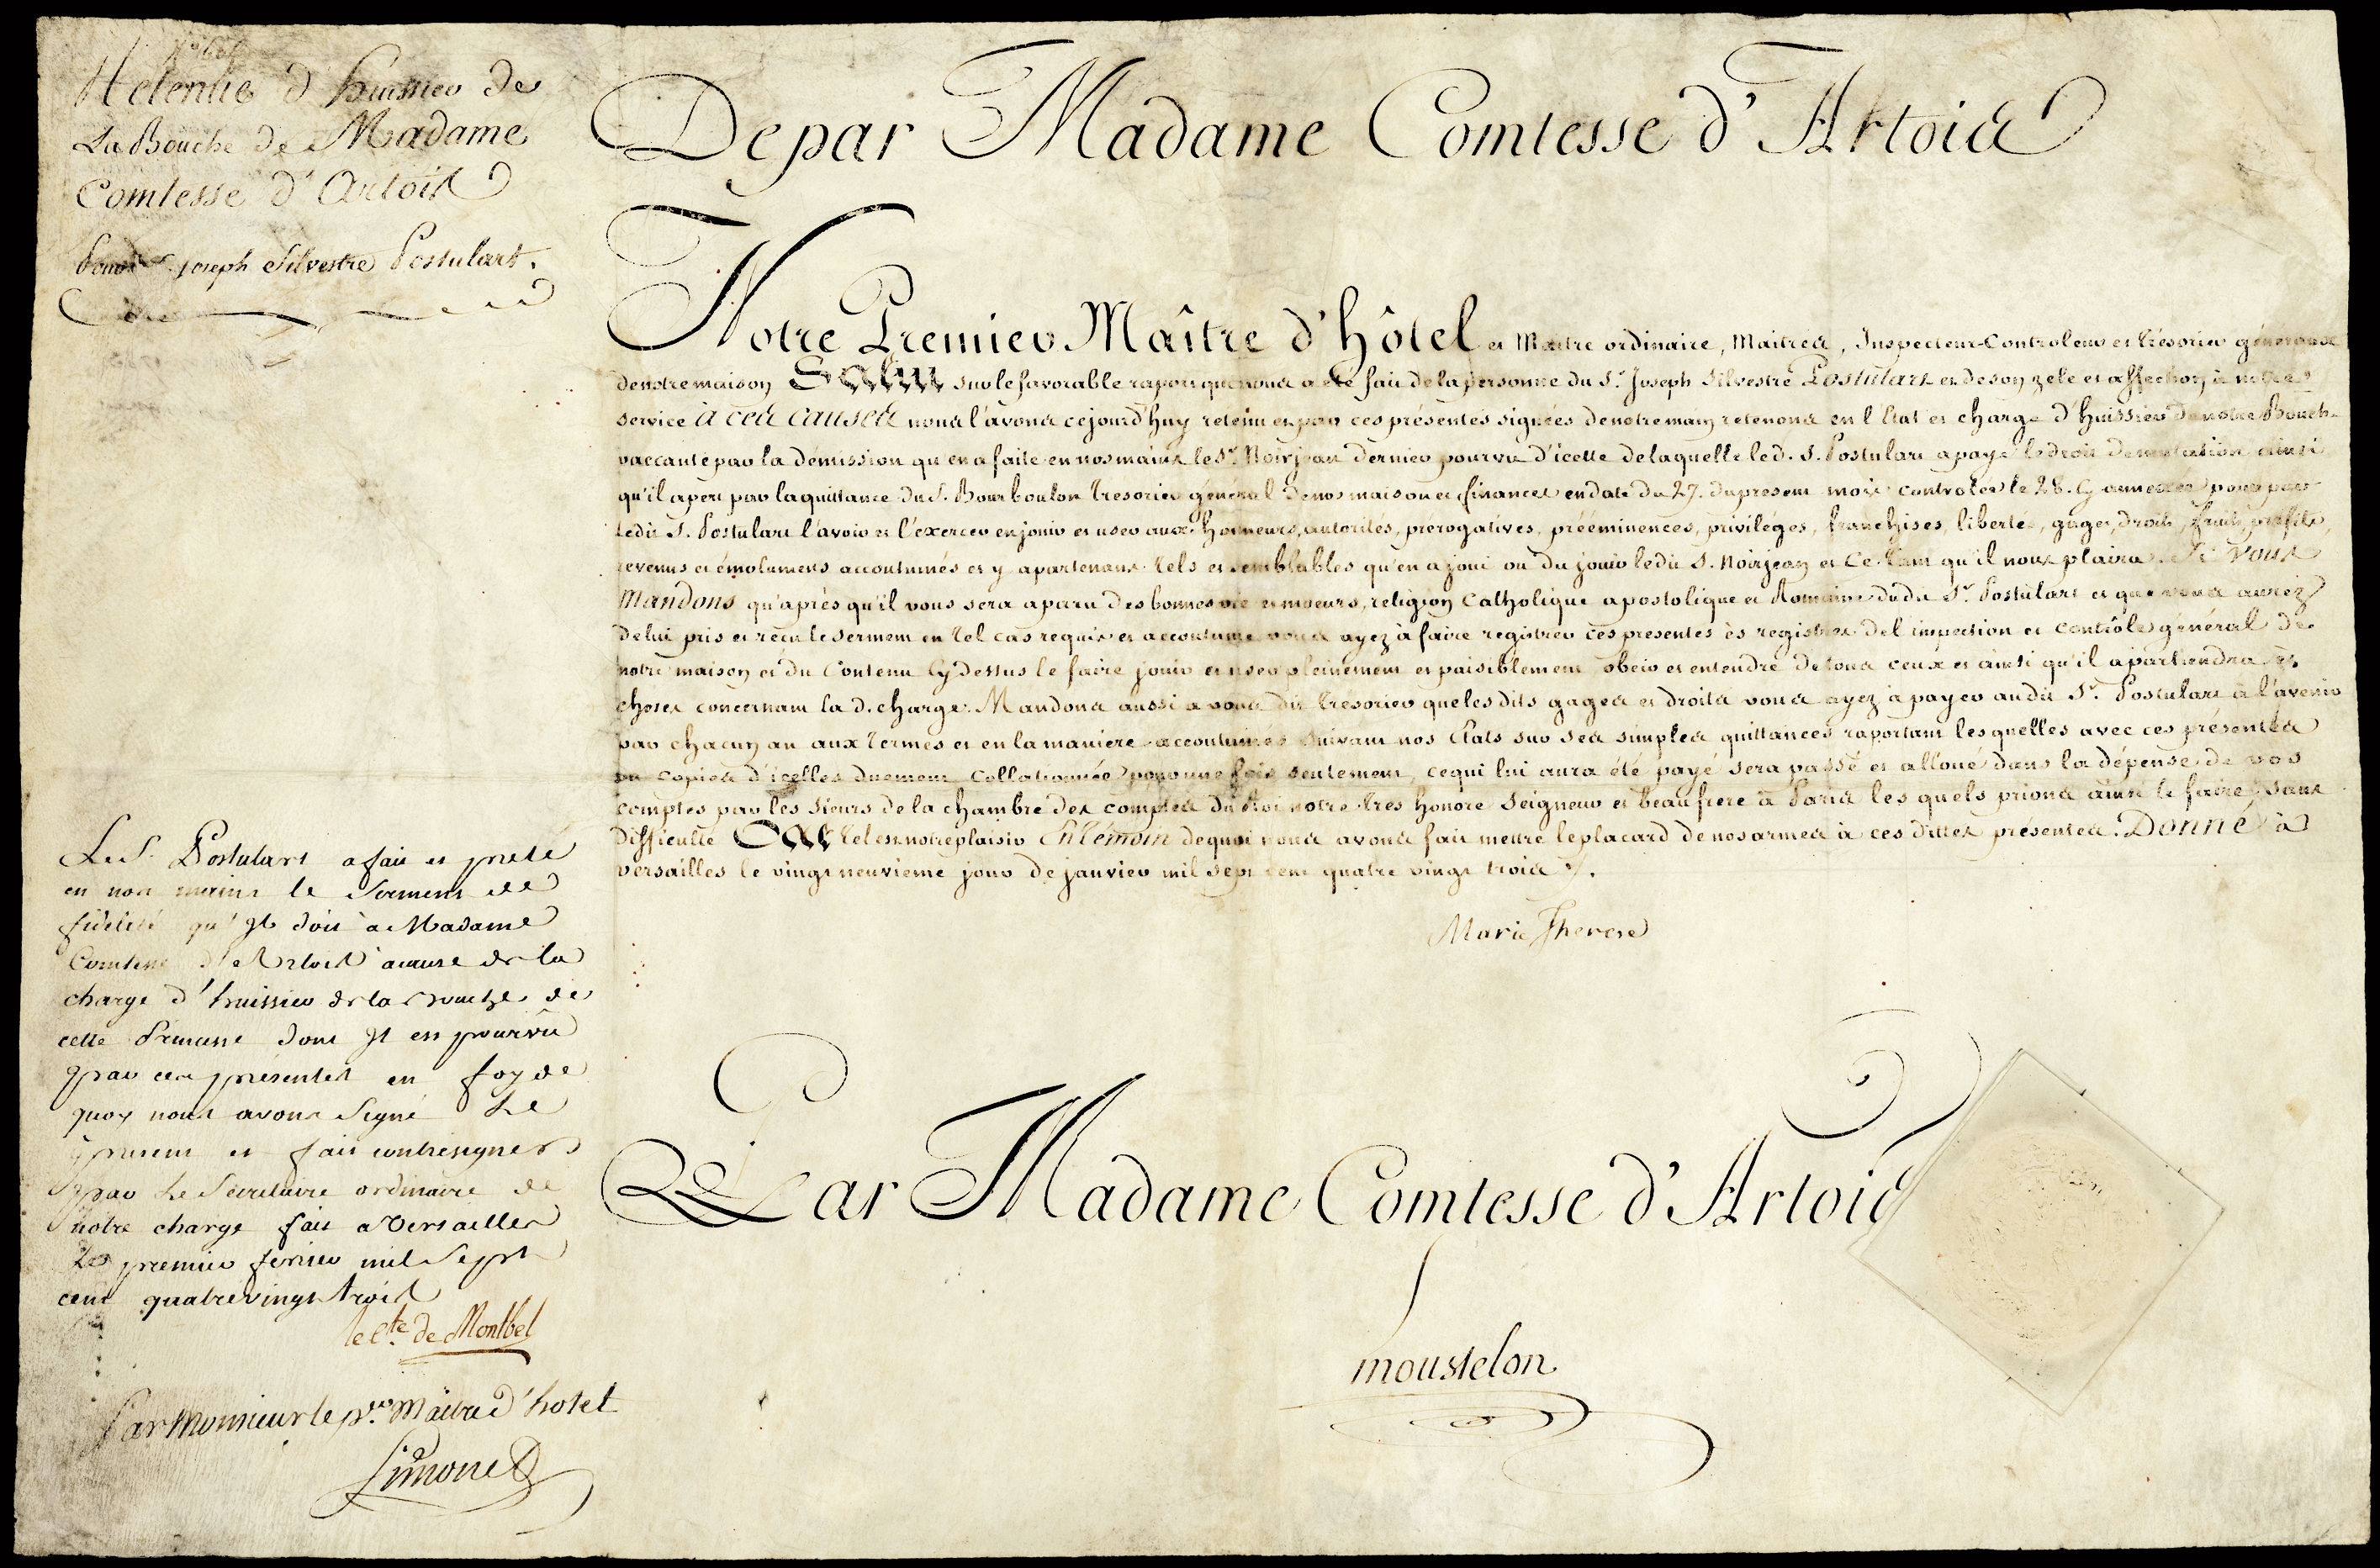 Retenue d'huissier de
La Bouche de Madame
Comtesse d'Artois
Pour Joseph Silvestre Postulart.
De par Madame Comtesse d'Artois
Notre Premier Maître d'hôtel et Maitre ordinaire, Maitres, Inspecteur-Controleur et Trésorier généraux
de notre maison Salut sur le favorable raport que nous a été fait de la personne du Sr. Joseph Silvestre Postulart et de son zele et affection à notre
service à ces causes nous l'avons cejourd'huy retenu et par ces présentes signées de notre main retenons en l'Etat et charge d'huissier de notre Bouche
vaccante par la démission qu'en a faite en nos mains le Sr. Noirjean dernier pourvu d'icelle de laquelle led. S. Postulart a payé le droit de mutation ainsi
qu'il apert par la quittance du S. Bourboulon Tresorier général de nos maison et finances en date du 27. du present mois controlée le 28. Cy annexée pour par
ledit S. Postulart l'avoir et l'exercer en jouir et user aux honneurs, autorités, prérogatives, prééminences, privileges, franchises, libertés, gages, droits, fruits, profits,
revenus et émolumens accoutumés et y apartenans tels et semblables qu'en a joui ou du jouir ledit S. Noirjean et ce tant qu'il nous plaira. Si vous
Mandons qu'après qu'il vous sera aparu des bonnes vie et moeurs, religion Catholique apostolique et Romaine dudit Sr. Postulart et que vous aurez
de lui pris et recu le serment en tel cas requis et accoutumé vous ayez à faire registrer ces presentes ès registres de l'inspection et contrôle général de
notre maison et du Contenu Cy dessus le faire jouir et user pleinement et paisiblement obeir et entendre de tous ceux et ainsi qu'il apartiendra ès
choses concernant la d. charge. Mandons aussi a vous dit Trésorier que lesdits gages et droits vous ayez à payer audit Sr. Postulart à l'avenir
par chacun an aux termes et en la maniere accoutumés suivant nos Etats sur ses simples quittances raportant les quelles avec ces présentes
ou copies d'icelles duement Collationnée pour une fois seulement, ce qui lui aura été payé sera passé et alloué dans la dépense de vos
comptes par les Sieurs de la chambre des comptes du Roi notre tres honore Seigneur et beaufrere à Paris les quels prions ainsi le faire sans
difficulté Car tel est notre plaisir En témoin de quoi nous avons fait mettre le placard de nos armes à ces dittes présentes. Donné à
versailles le vingt neuvieme jour de janvier mil sept cent quatre vingt trois.
Marie Therese
Par Madame Comtesse d'Artois
moustelon
Le S. Postulart a fait et preté
en nos mains le Serment de
fidelité qu'Il doit à Madame
Comtesse d'Artois à cause de la
charge d'huissier de la Bouche de
cette Princesse dont Il est pourvû
par ces presentes en foy de
quoy nous avons Signé Le
present et fait contresigner
par Le Secretaire ordinaire de
notre charge fait a Versailles
Le premier fevrier mil Sept
cent quatrevingt trois
le Cte. de Montbel
Par Monsieur le pr. Maitre d'hotel
Simonet